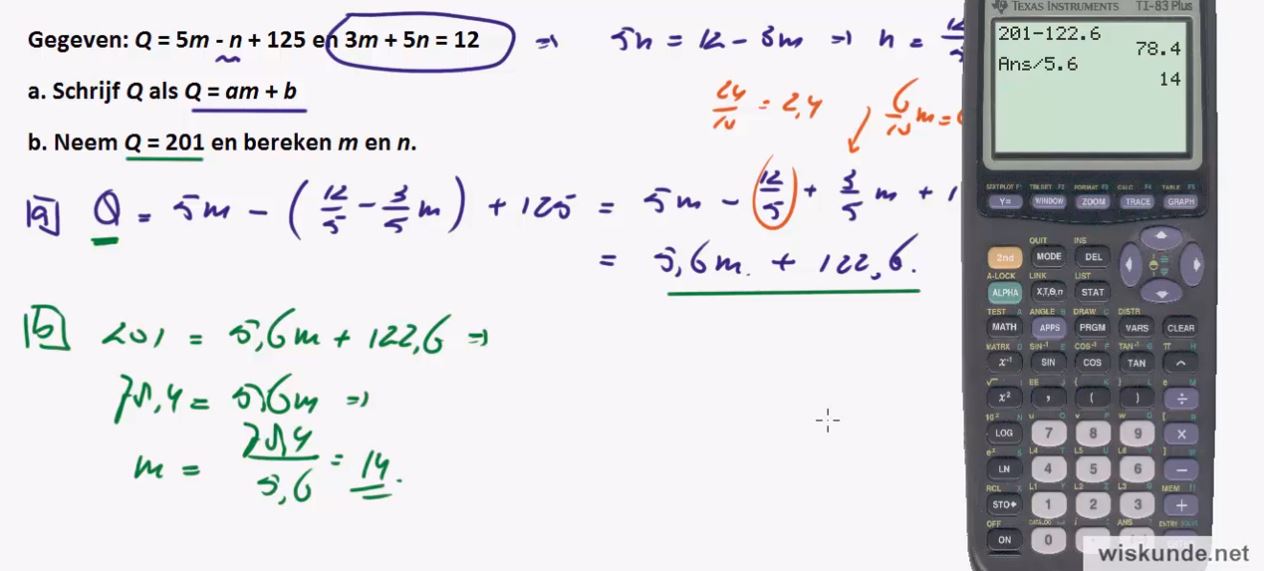 Gegeven: Q = 5m - n + 125 en 3m + 5n = 12 => 5n = 12 - 3m => n = 12/5
a. Schrijf Q als Q = am + b
24/10 = 2,4
6/10 m =
b. Neem Q = 201 en bereken m en n.
a Q = 5m - (12/5 - 3/5 m) + 125 = 5m - (12/5) + 3/5 m + 1
= 5,6m + 122,6.
b 201 = 5,6m + 122,6 =>
78,4 = 5,6m =>
m = 78,4/5,6 = 14.
TEXAS INSTRUMENTS TI-83 Plus
201-122.6
78.4
Ans/5.6
14
STAT PLOT F1 TBLSET F2 FORMAT F3 CALC F4 TABLE F5
Y= WINDOW ZOOM TRACE GRAPH
QUIT INS
2nd MODE DEL
A-LOCK LINK LIST
ALPHA X,T,θ,n STAT
TEST A ANGLE B DRAW C DISTR
MATH APPS PRGM VARS CLEAR
MATRX D SIN-1 E COS-1 F TAN-1 G π H
x-1 SIN COS TAN ^
x² , ( ) ÷
LOG 7 8 9 ×
LN 4 5 6 −
RCL X L1 Y L2 Z L3 MEM
STO 1 2 3 +
OFF CATALOG ANS ENTRY SOLVE
ON 0
wiskunde.net